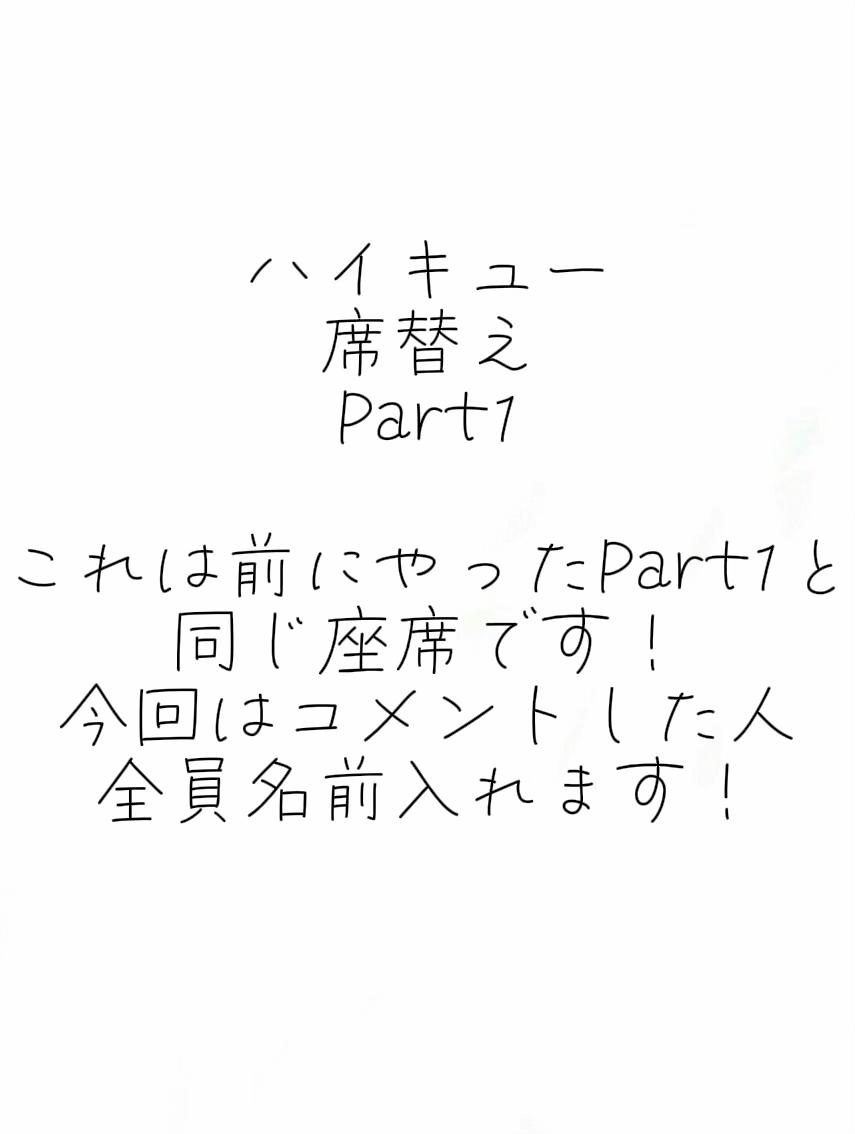 ハイキュー
席替え
Part1
これは前にやったPart1と
同じ座席です！
今回はコメントした人
全員名前入れます！